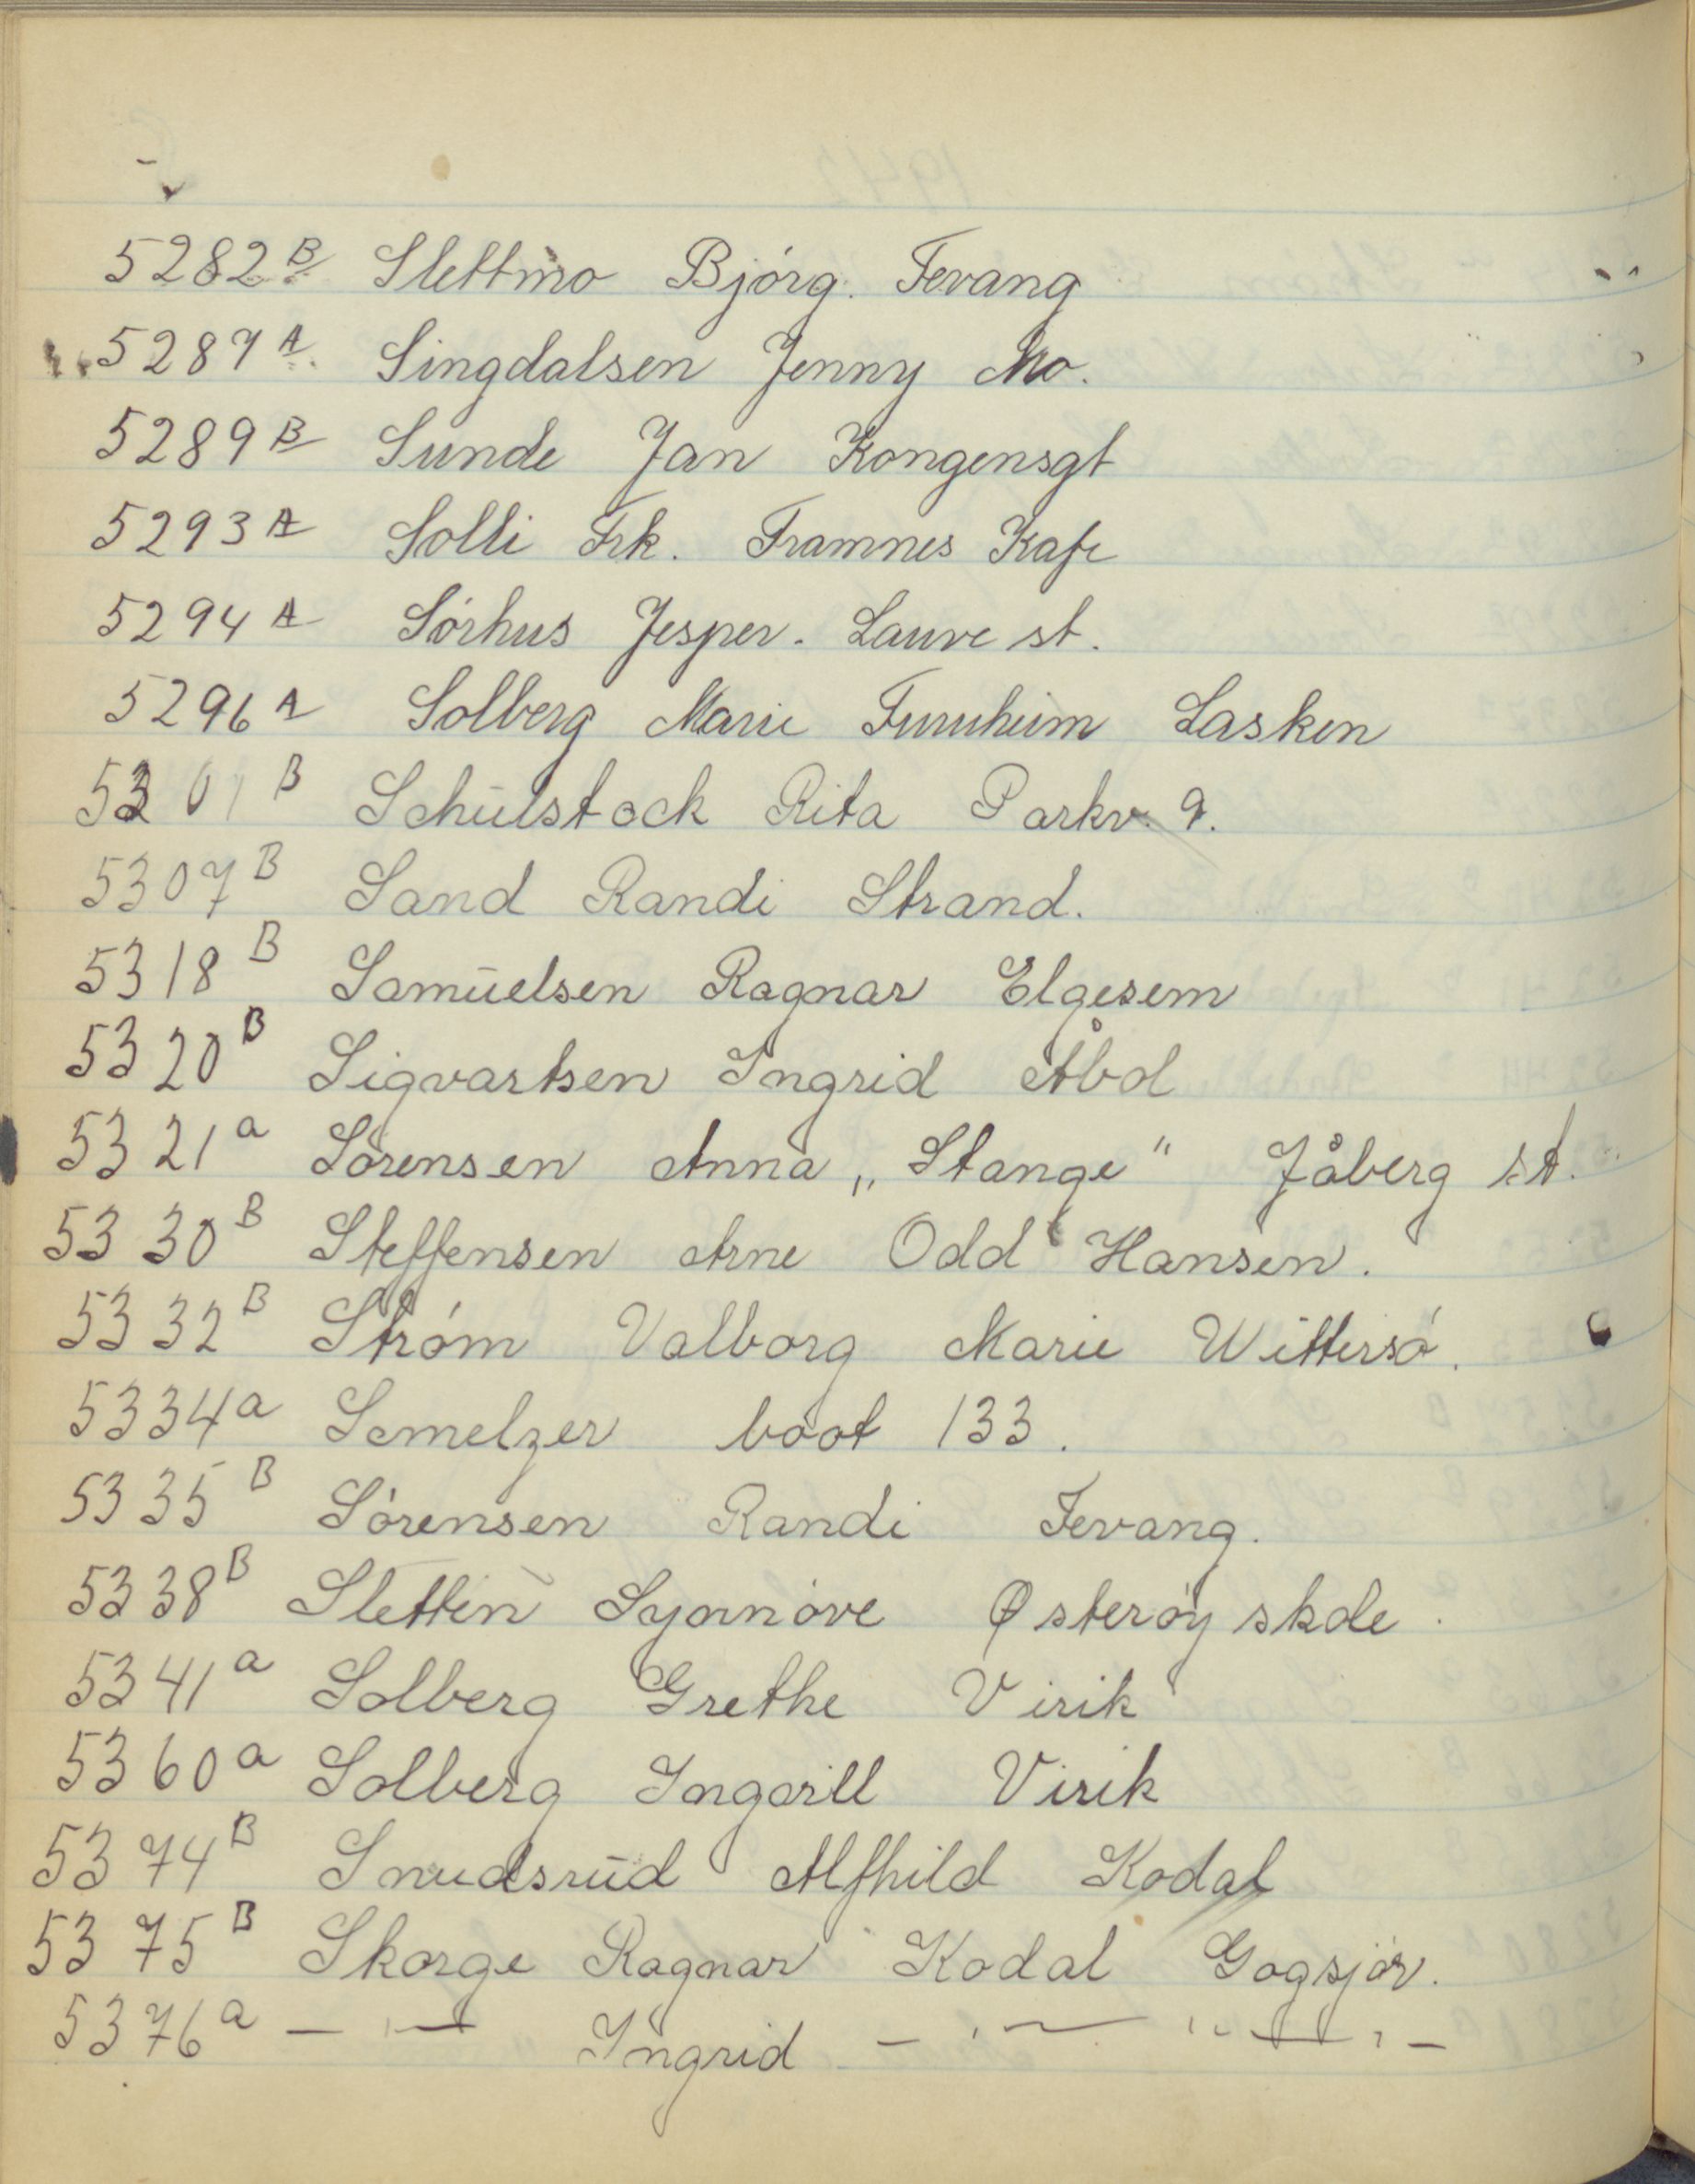 5282 B Slettmo Bjórg. Fevang
5287 A Singdalsen Jenny Mo.
5289 B Sunde Jan Kongensgt
5293 A Solli Frk. Framnes Kafe
5294 A Sórhus Jesper. Lauve st.
5296 A Solberg Marie Furuheim Lasken
5301 B Schulstock Rita Parkv. 9.
5307 B Sand Randi Strand.
5318 B Samuelsen Ragnar Elgesem
5320 B Sigvartsen Ingrid Åbol
5321 a Sórensen Anna „Stange" Jåberg st.
5330 B Steffensen Arne Odd Hansen.
5332 B Stróm Valborg Marie Wittersó.
5334 a Smelzer boot 133.
5335 B Sórensen Randi Fevang.
5338 B Slettin Synnóve Østeróy skole.
5341 a Solberg Grethe Virik
5360 a Solberg Ingorill Virik
5374 B Snudsrud Alfhild Kodal
5375 B Skorge Ragnar Kodal Gogsjór.
5376 a — " — Ingrid — " — " — " —